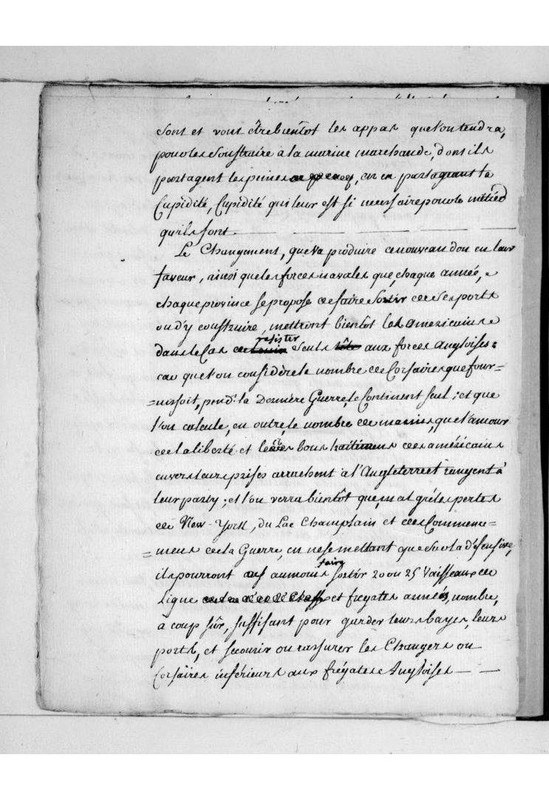 sont et vont être bientot les appas que l'on tendra,
pour les soustraire à la marine marchande, dont ils
partagent les peines, en partageant la
Cupidité, Cupidité qui leur est si necessaire pour le métier
qu'ils font.
Le Changement, que va produire ce nouveau don en leur
faveur, ainsi que les forces navales que, chaque année,
chaque province se propose de faire sortir de ses ports
ou d'y construire, mettront bientot les americains
dans le Cas de resister seuls aux forces angloises:
car que l'on considère le nombre de Corsaires que four-
=nissoit, pend.t la Derniére Guerre, le Continent seul; et que
l'on calcule, en outre, le nombre de marins, que l'amour
de la liberté et les bons traitemens des américains
envers leurs prises arrachent à l'Angleterre et rangent à
leur party; et l'on verra bientot que, malgré les pertes
de New-York, du Lac Champlain et des Commence=
=mens de la Guerre, en ne se mettant que sur la défensive,
ils pourront au moins faire sortir 20 ou 25 Vaisseaux de
Ligne et fregates armés, nombre,
à coup sûr, suffisant pour garder leurs bayes, leurs
ports, et secourir ou rassurer les Etrangers ou
Corsaires inférieurs aux frégates Angloises